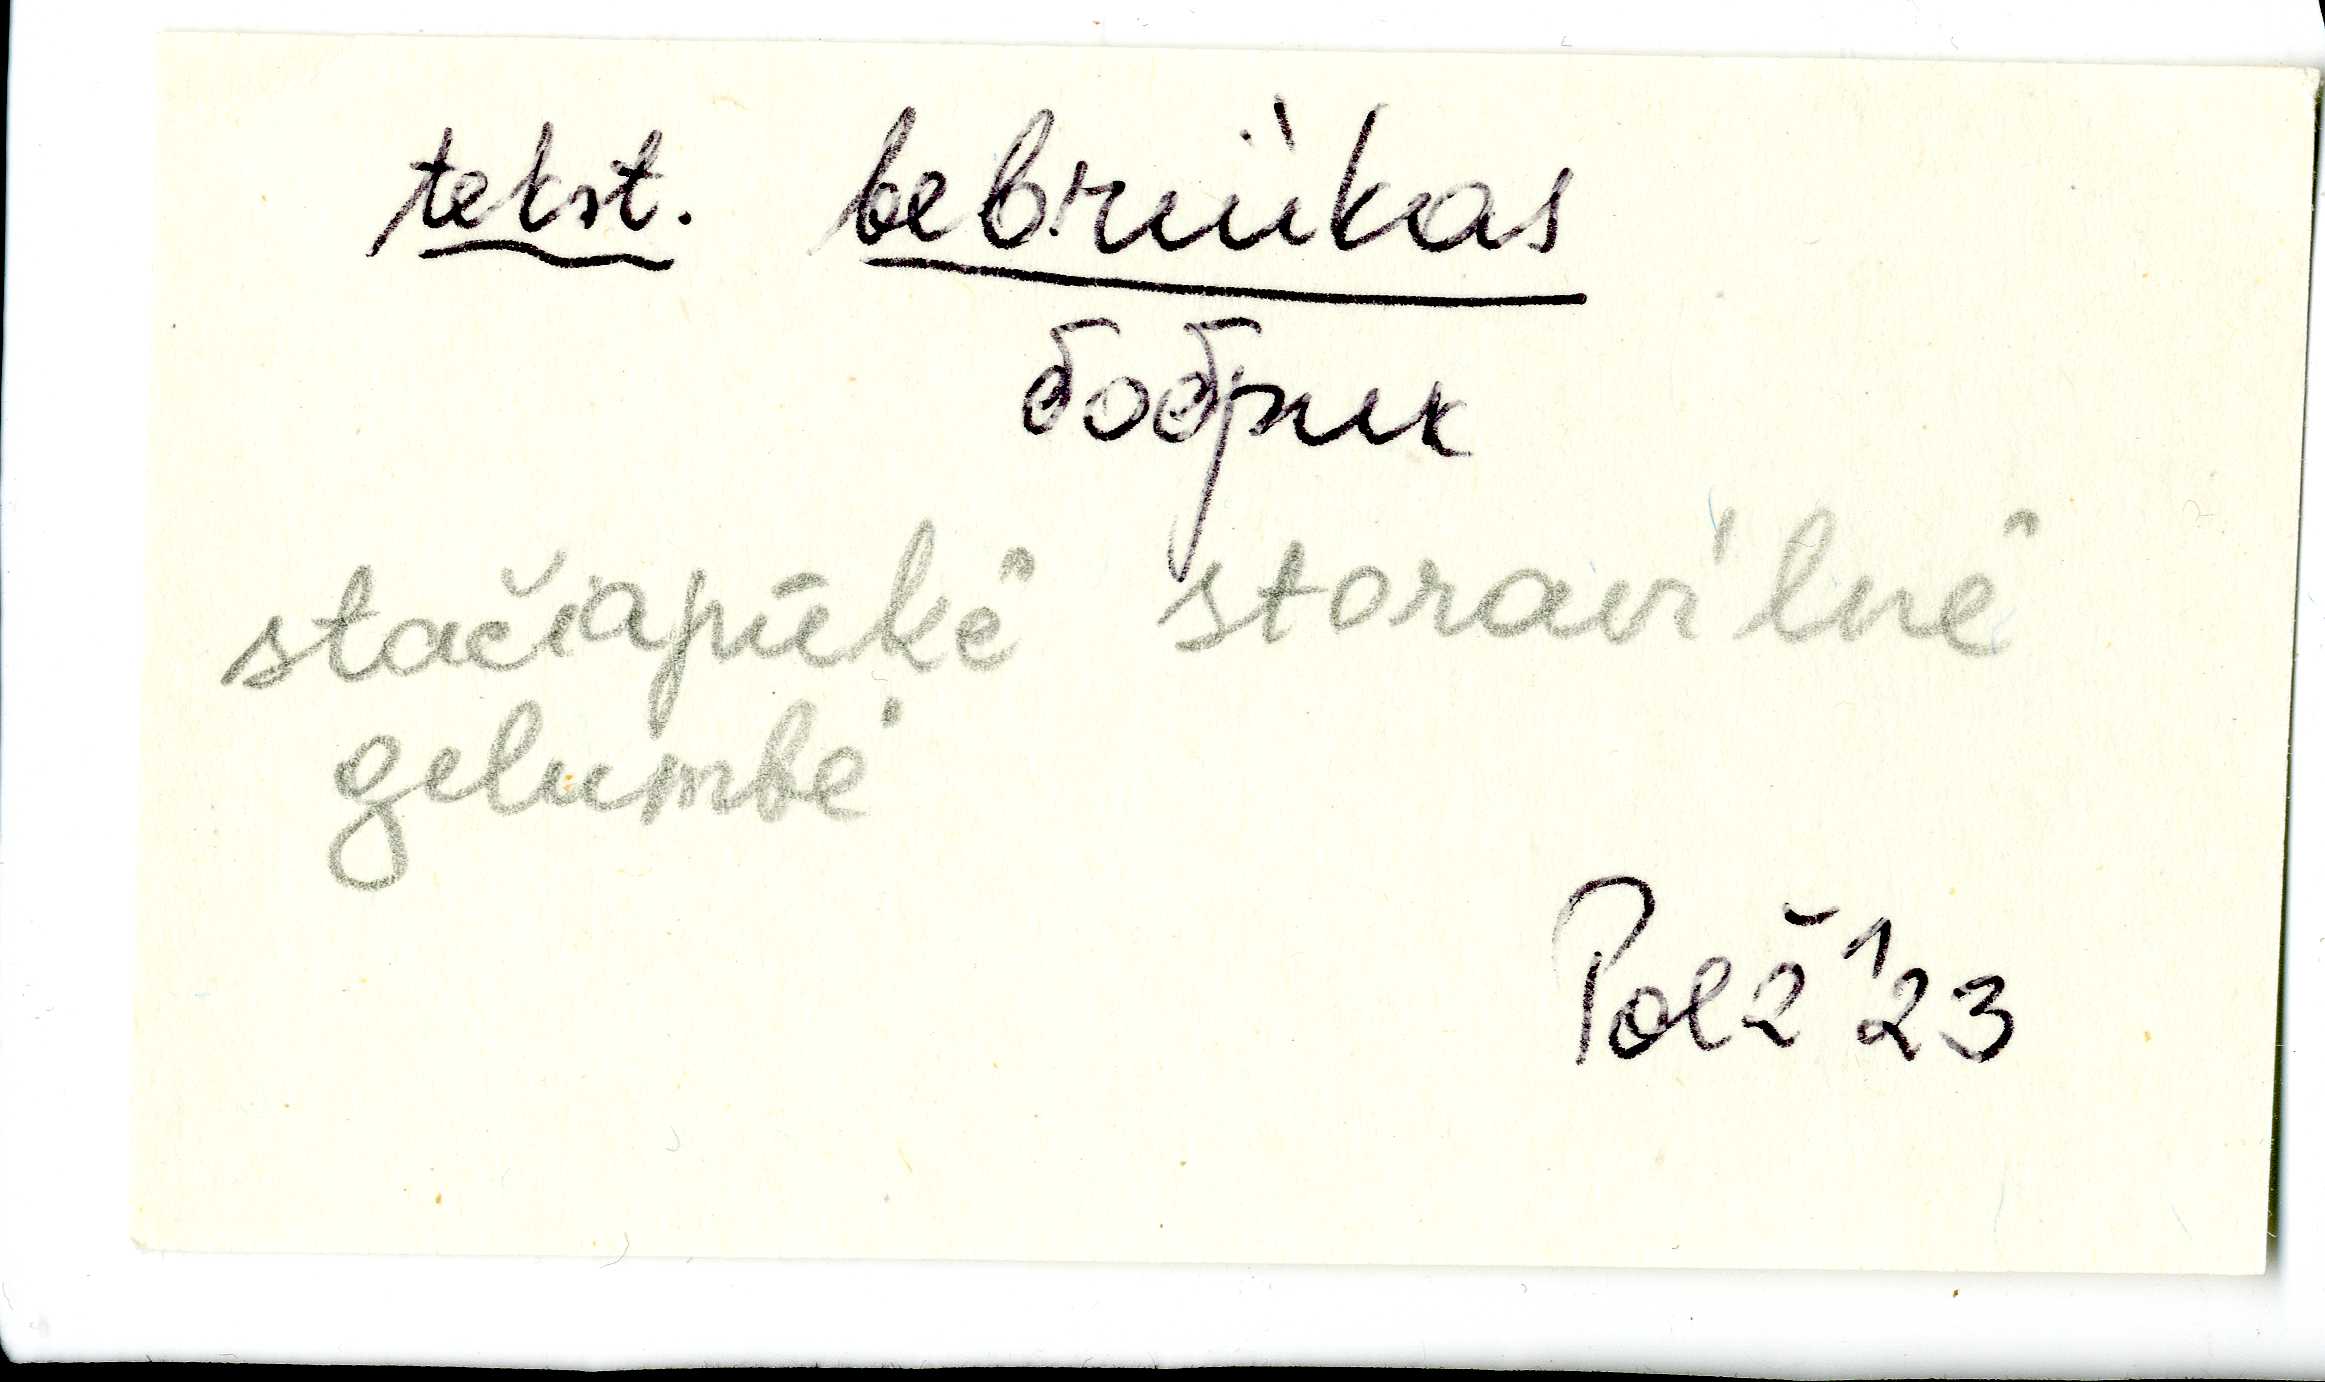 tekst. bebriùkas
бобрик
stačiapūkė storavilnė
gelumbė
PolŽ¹23